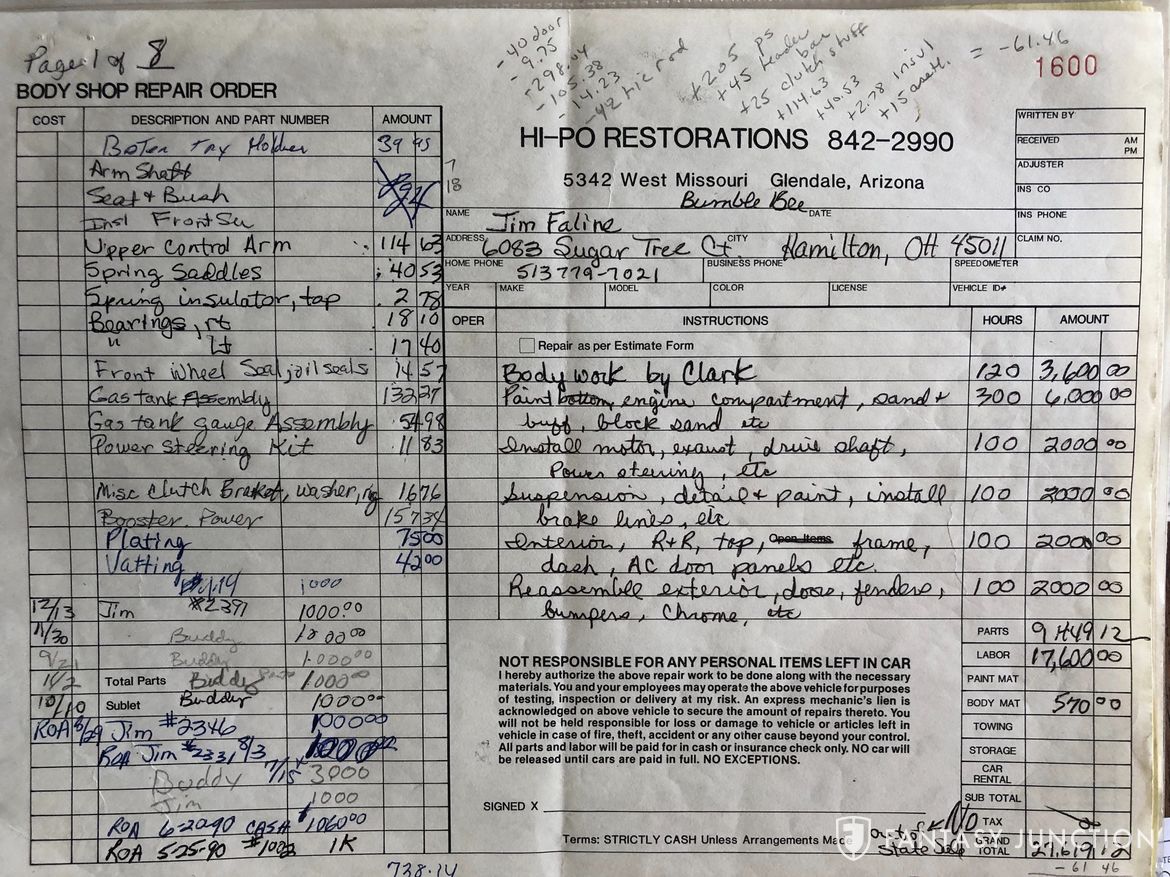 Page 1 of 8
-40 door
-9.75
-298.64
-105.38
-14.23
-42
+205 ps
+45 header
+25 clutch stuff
+114.63
+40.53
+2.78 insul
= -61.46
1600
BODY SHOP REPAIR ORDER
COST DESCRIPTION AND PART NUMBER AMOUNT
39 95
Arm Shaft
Seat & Bush
Upper Control Arm 114 63
Spring Saddles 40 53
Spring insulator, top 2 78
Bearings, rt 18 10
" Lt 17 40
Front Wheel Seal, oil seals 14 57
Gas tank Assembly 132 27
Gas tank gauge Assembly 54 98
Power Steering Kit 11 83
Misc Clutch Braket, washer, 16 76
Booster, Power 157 34
Plating 75 00
Vatting 42 00
1000
12/13 Jim #2391 1000.00
11/30 Buddy 1000 00
9/21 Buddy 1,000 00
11/2 Total Parts Buddy Parts 1000 00
10/10 Sublet Buddy 1000 00
ROA 8/29 Jim #2346 1000 00
ROA Jim #2331 8/3 1000 00
Buddy 7/15 3000
Jim 1000
ROA 6-20-90 CASH 1060 00
ROA 5-25-90 #1002 1K
738.14
HI-PO RESTORATIONS 842-2990
7
18
5342 West Missouri Glendale, Arizona
Bumble Bee
NAME Jim Faline DATE
ADDRESS 6083 Sugar Tree Ct. CITY Hamilton, OH 45011
HOME PHONE 513 779-7021 BUSINESS PHONE SPEEDOMETER
YEAR MAKE MODEL COLOR LICENSE VEHICLE ID#
WRITTEN BY
RECEIVED AM PM
ADJUSTER
INS CO
INS PHONE
CLAIM NO.
OPER INSTRUCTIONS HOURS AMOUNT
Repair as per Estimate Form
Body work by Clark 120 3,600 00
Paint bottom, engine compartment, sand & 300 6,000 00
buff, block sand etc
Install motor, exaust, drive shaft, 100 2000 00
Power steering, etc
Suspension, detail & paint, install 100 2000 00
brake lines, etc
Interior, R+R, top, Open Items frame, 100 2000 00
dash, AC door panels etc.
Reassemble exterior, doors, fenders, 100 2000 00
bumpers, Chrome, etc
NOT RESPONSIBLE FOR ANY PERSONAL ITEMS LEFT IN CAR
I hereby authorize the above repair work to be done along with the necessary
materials. You and your employees may operate the above vehicle for purposes
of testing, inspection or delivery at my risk. An express mechanic's lien is
acknowledged on above vehicle to secure the amount of repairs thereto. You
will not be held responsible for loss or damage to vehicle or articles left in
vehicle in case of fire, theft, accident or any other cause beyond your control.
All parts and labor will be paid for in cash or insurance check only. NO car will
be released until cars are paid in full. NO EXCEPTIONS.
SIGNED X
Terms: STRICTLY CASH Unless Arrangements Made
PARTS 9,449 12
LABOR 17,600 00
PAINT MAT
BODY MAT 570 00
TOWING
STORAGE
CAR RENTAL
SUB TOTAL
No TAX
out of State Sale
GRAND TOTAL 27,619 12
-61 46
FANTASY JUNCTION